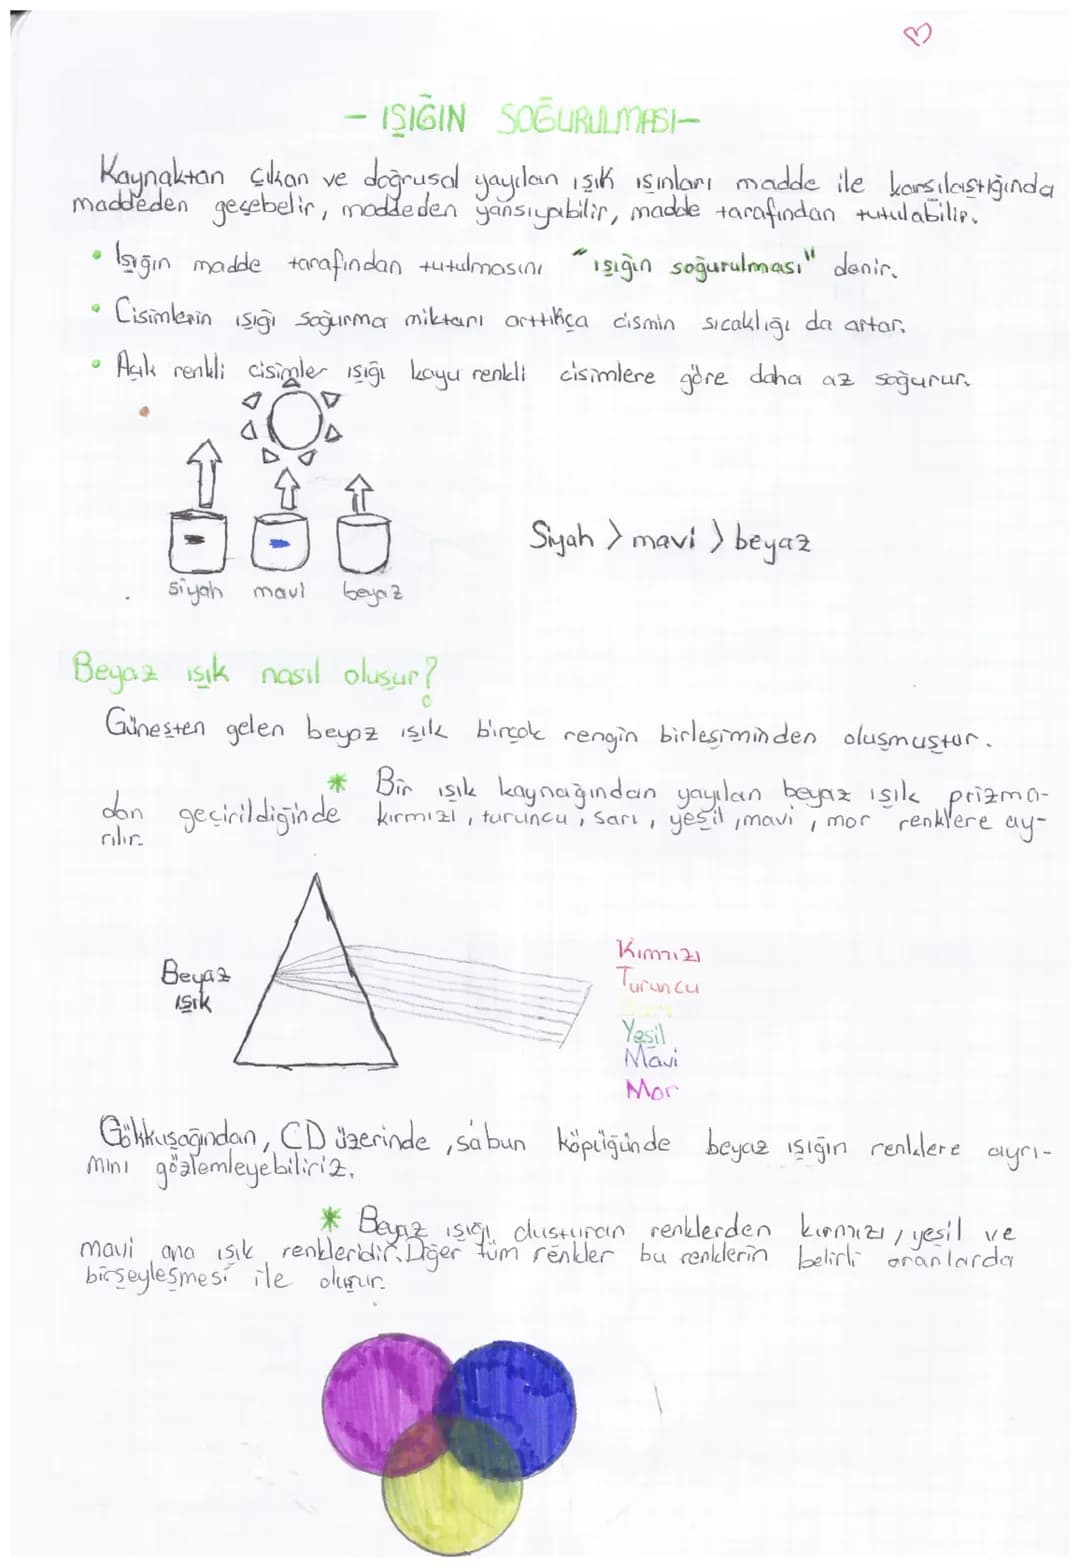 - IŞIĞIN SOĞURULMASI-
Kaynaktan çıkan ve doğrusal yayılan ışık ışınları madde ile karşılaştığında
maddeden geçebelir, maddeden yansıyabilir, madde tarafından tutulabilir.
• Işığın madde tarafından tutulmasını "ışığın soğurulması" denir.
• Cisimlerin ışığı soğurma miktarı arttıkça cismin sıcaklığı da artar.
• Açık renkli cisimler ışığı koyu renkli cisimlere göre daha az soğurur.
Siyah > mavi > beyaz
siyah mavi beyaz
Beyaz ışık nasıl oluşur?
Güneşten gelen beyaz ışık birçok rengin birleşiminden oluşmuştur.
* Bir ışık kaynağından yayılan beyaz ışık prizma-
dan geçirildiğinde kırmızı, turuncu, sarı, yeşil, mavi, mor renklere ay-
rılır.
Kırmızı
Beyaz
ışık
Turuncu
Sarı
Yeşil
Mavi
Mor
Gökkuşağından, CD üzerinde, sabun köpüğünde beyaz ışığın renklere ayrı-
mını gözlemleyebiliriz.
* Beyaz ışığı oluşturan renklerden kırmızı, yeşil ve
mavi ana ışık renkleridir. Diğer tüm renkler bu renklerin belirli oranlarda
birşeyleşmesi ile oluşur.